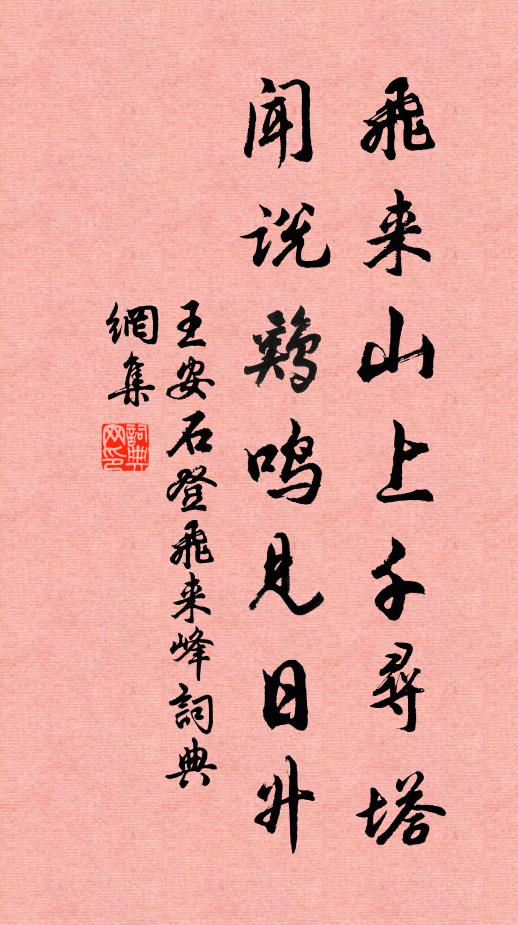 飛来山上千尋塔
闻说鷄鳴見日升
王安石登飛来峰詞典
網集
詞典网印